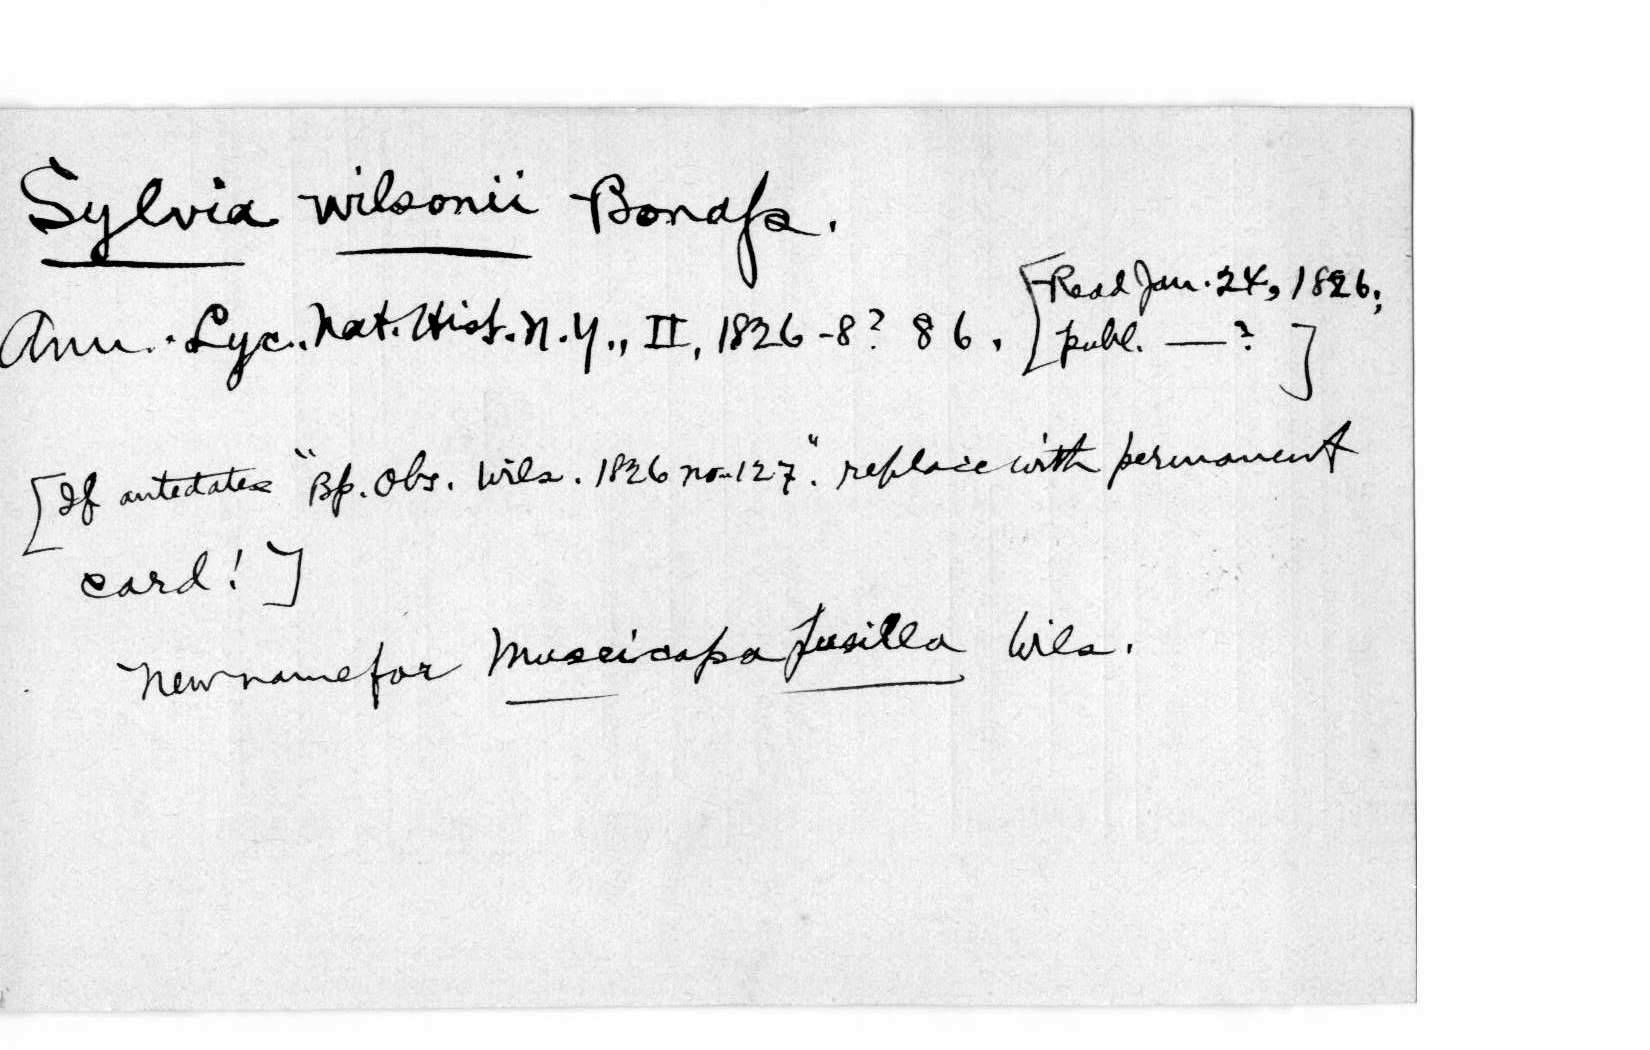 Sylvia wilsonii Bonap.
Ann. Lyc. Nat. Hist. N.Y., II, 1826-8? 86. [Read Jan. 24, 1826;
publ. — ? ]
[If antedates "Bp. Obs. Wils. 1826 no. 127". replace with permanent
card! ]
New name for Muscicapa pusilla Wils.